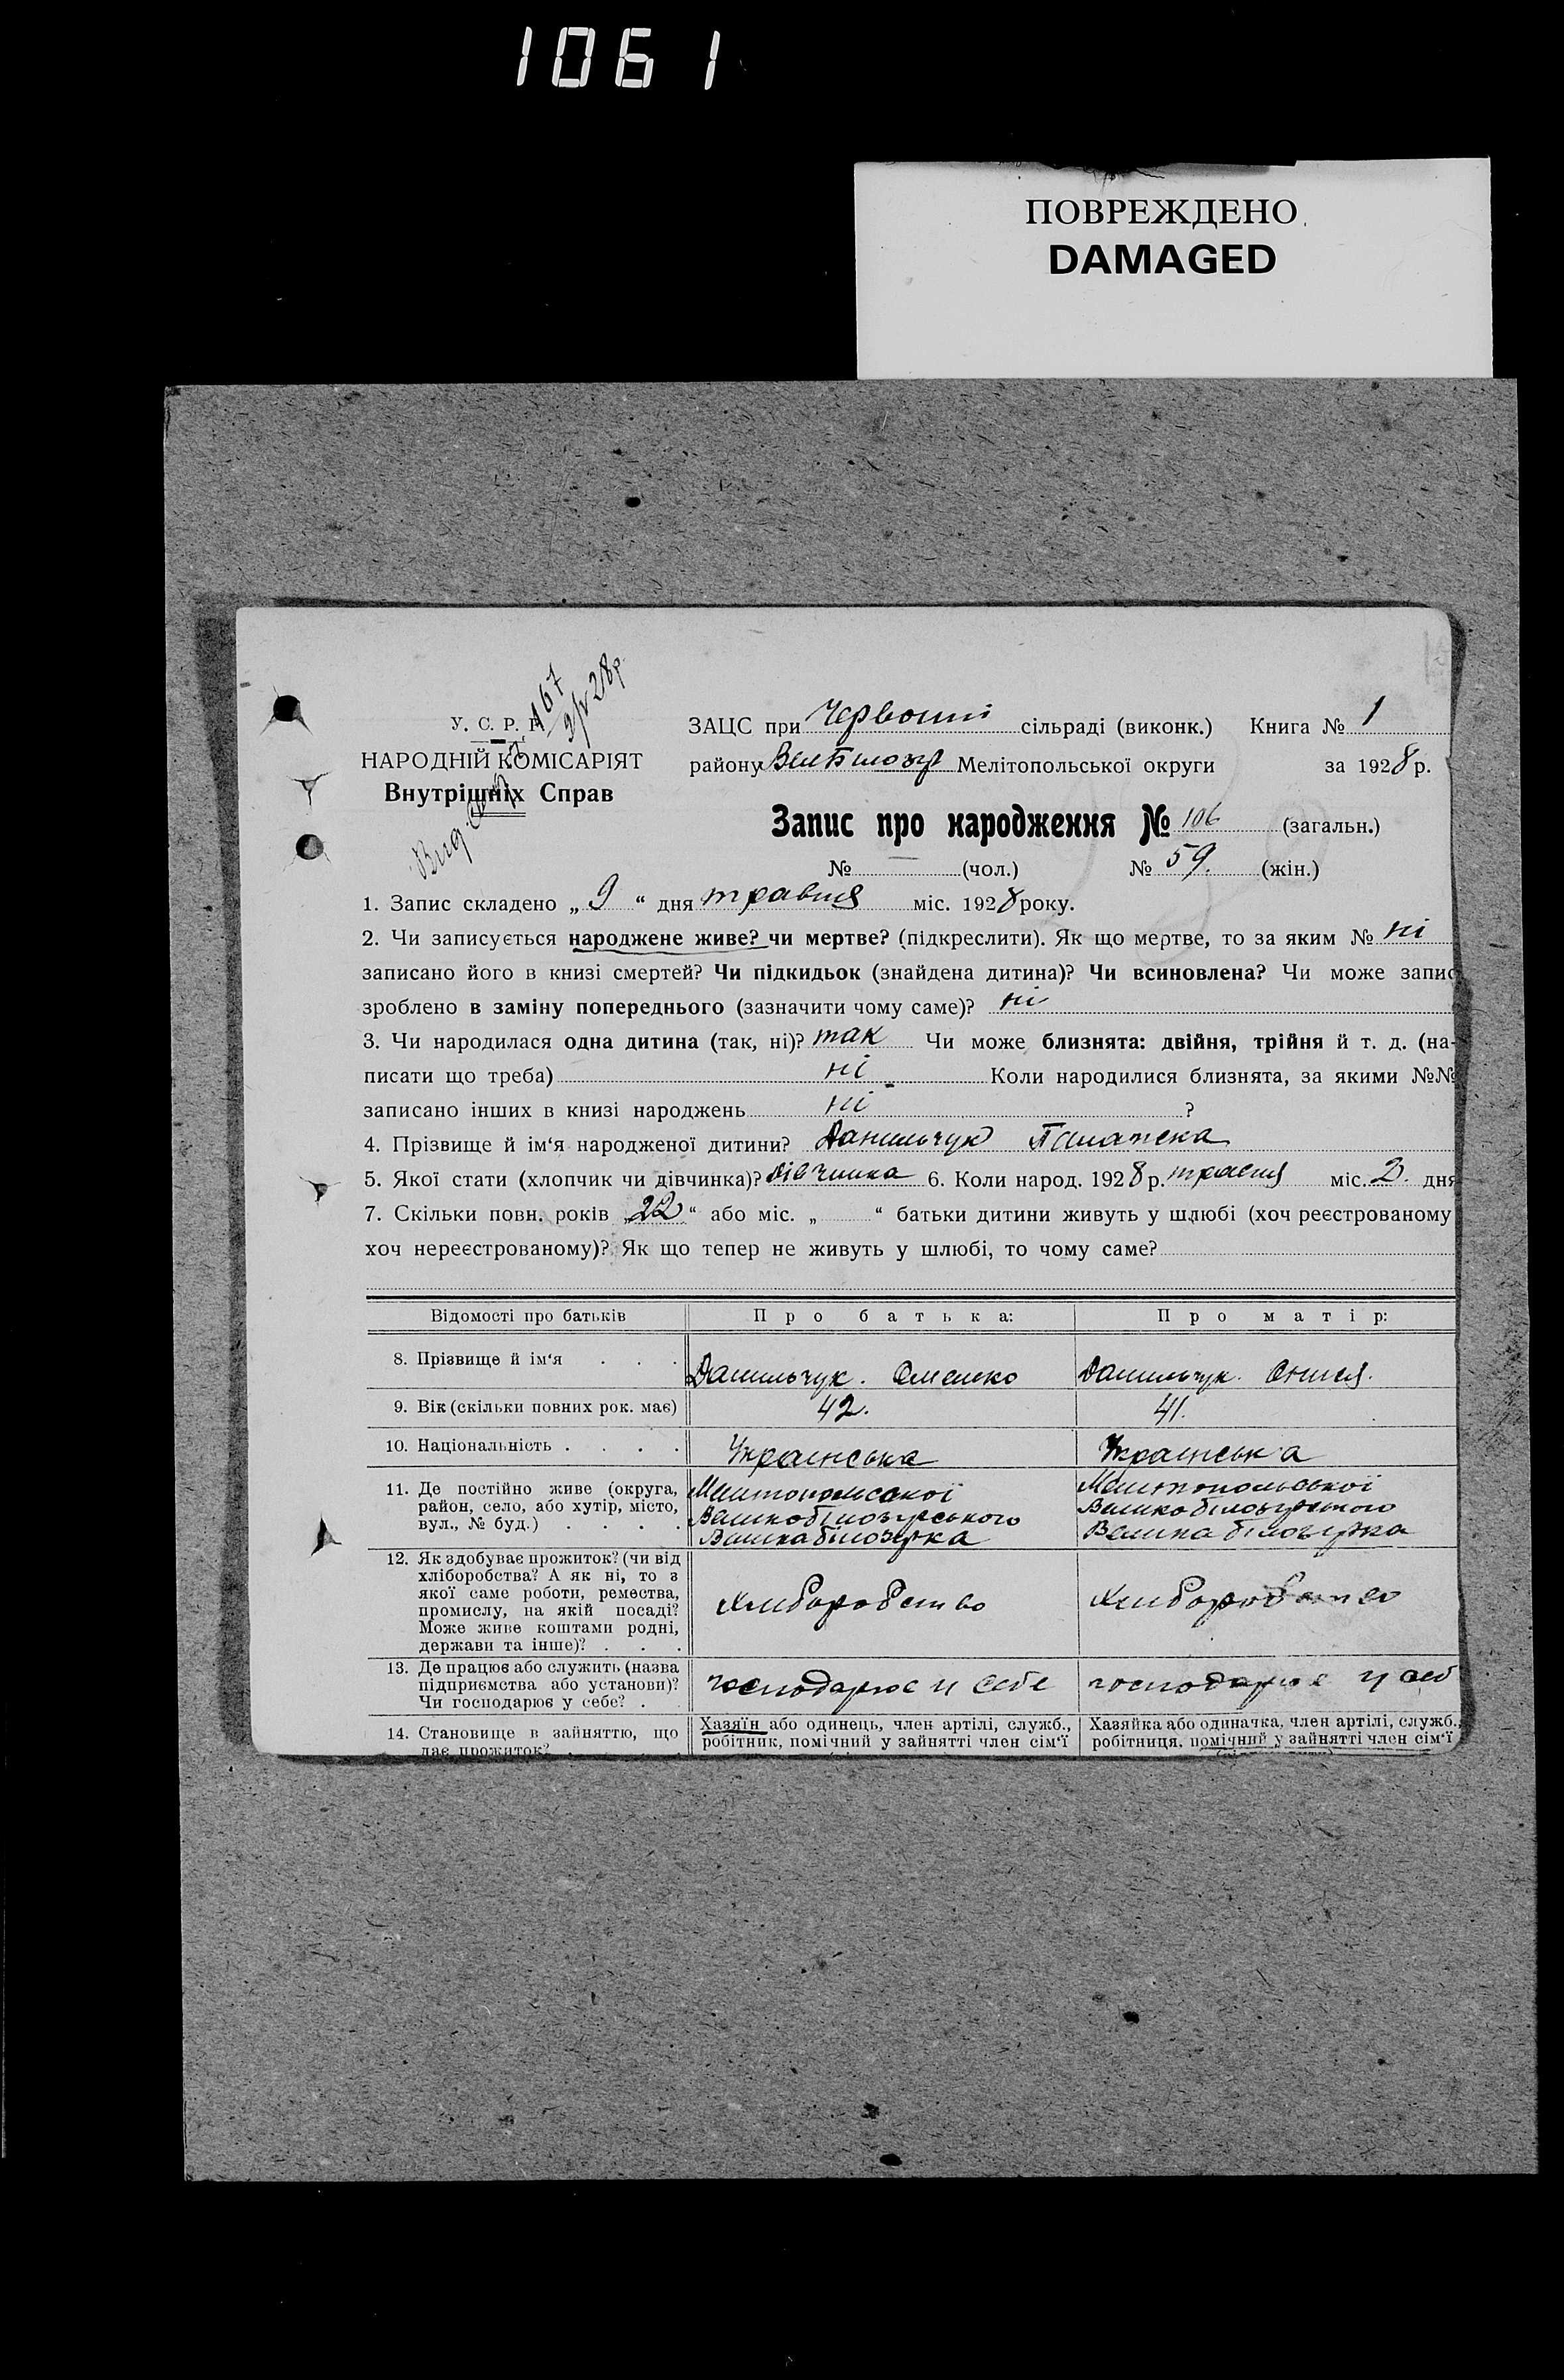 1061
ПОВРЕЖДЕНО
DAMAGED
167
9/V 28р
У. С. Р. Р.
НАРОДНІЙ КОМІСАРІЯТ
Внутрішніх Справ
Вид.
ЗАЦС при Червоній сільраді (виконк.) Книга № 1
району Вел Білозур Мелітопольської округи за 1928 р.
Запис про народження № 106 (загальн.)
№ — (чол.) № 59. (жін.)
1. Запис складено „ 9 “ дня травня міс. 1928 року.
2. Чи записується народжене живе? чи мертве? (підкреслити). Як що мертве, то за яким № ні
записано його в книзі смертей? Чи підкидьок (знайдена дитина)? Чи всиновлена? Чи може запис
зроблено в заміну попереднього (зазначити чому саме)? ні
3. Чи народилася одна дитина (так, ні)? так Чи може близнята: двійня, трійня й т. д. (на-
писати що треба) ні Коли народилися близнята, за якими №№
записано інших в книзі народжень ні ?
4. Прізвище й ім‘я народженої дитини? Данильчук
5. Якої стати (хлопчик чи дівчинка)? дівчинка 6. Коли народ. 1928 р. травня міс. 2. дня
7. Скільки повн. років „22“ або міс. „ “ батьки дитини живуть у шлюбі (хоч реєстрованому
хоч нереєстрованому)? Як що тепер не живуть у шлюбі, то чому саме?
Відомості про батьків Про батька: Про матір:
8. Прізвище й ім‘я . . . Данильчук. Омелько Данильчук. Онися.
9. Вік (скільки повних рок. має) 42. 41.
10. Національність . . . . Українська Українська
11. Де постійно живе (округа, Мелітопольської Мелітопольської
район, село, або хутір, місто, Великобілозурського Великобілозурського
вул., № буд.) . . . . Велика білозурка Велика білозурка
12. Як здобуває прожиток? (чи від
хліборобства? А як ні, то з
якої саме роботи, ремества,
промислу, на якій посаді? хлиборобство хлиборобство
Може живе коштами родні,
держави та інше)? . . .
13. Де працює або служить (назва
підприємства або установи)? господарює у себе господарює у себ
Чи господарює у себе? .
14. Становище в зайняттю, що Хазяїн або одинець, член артілі, служб., Хазяйка або одиначка, член артілі, служб.,
дає прожиток? . робітник, помічний у зайнятті член сім‘ї робітниця, помічний у зайнятті член сім‘ї